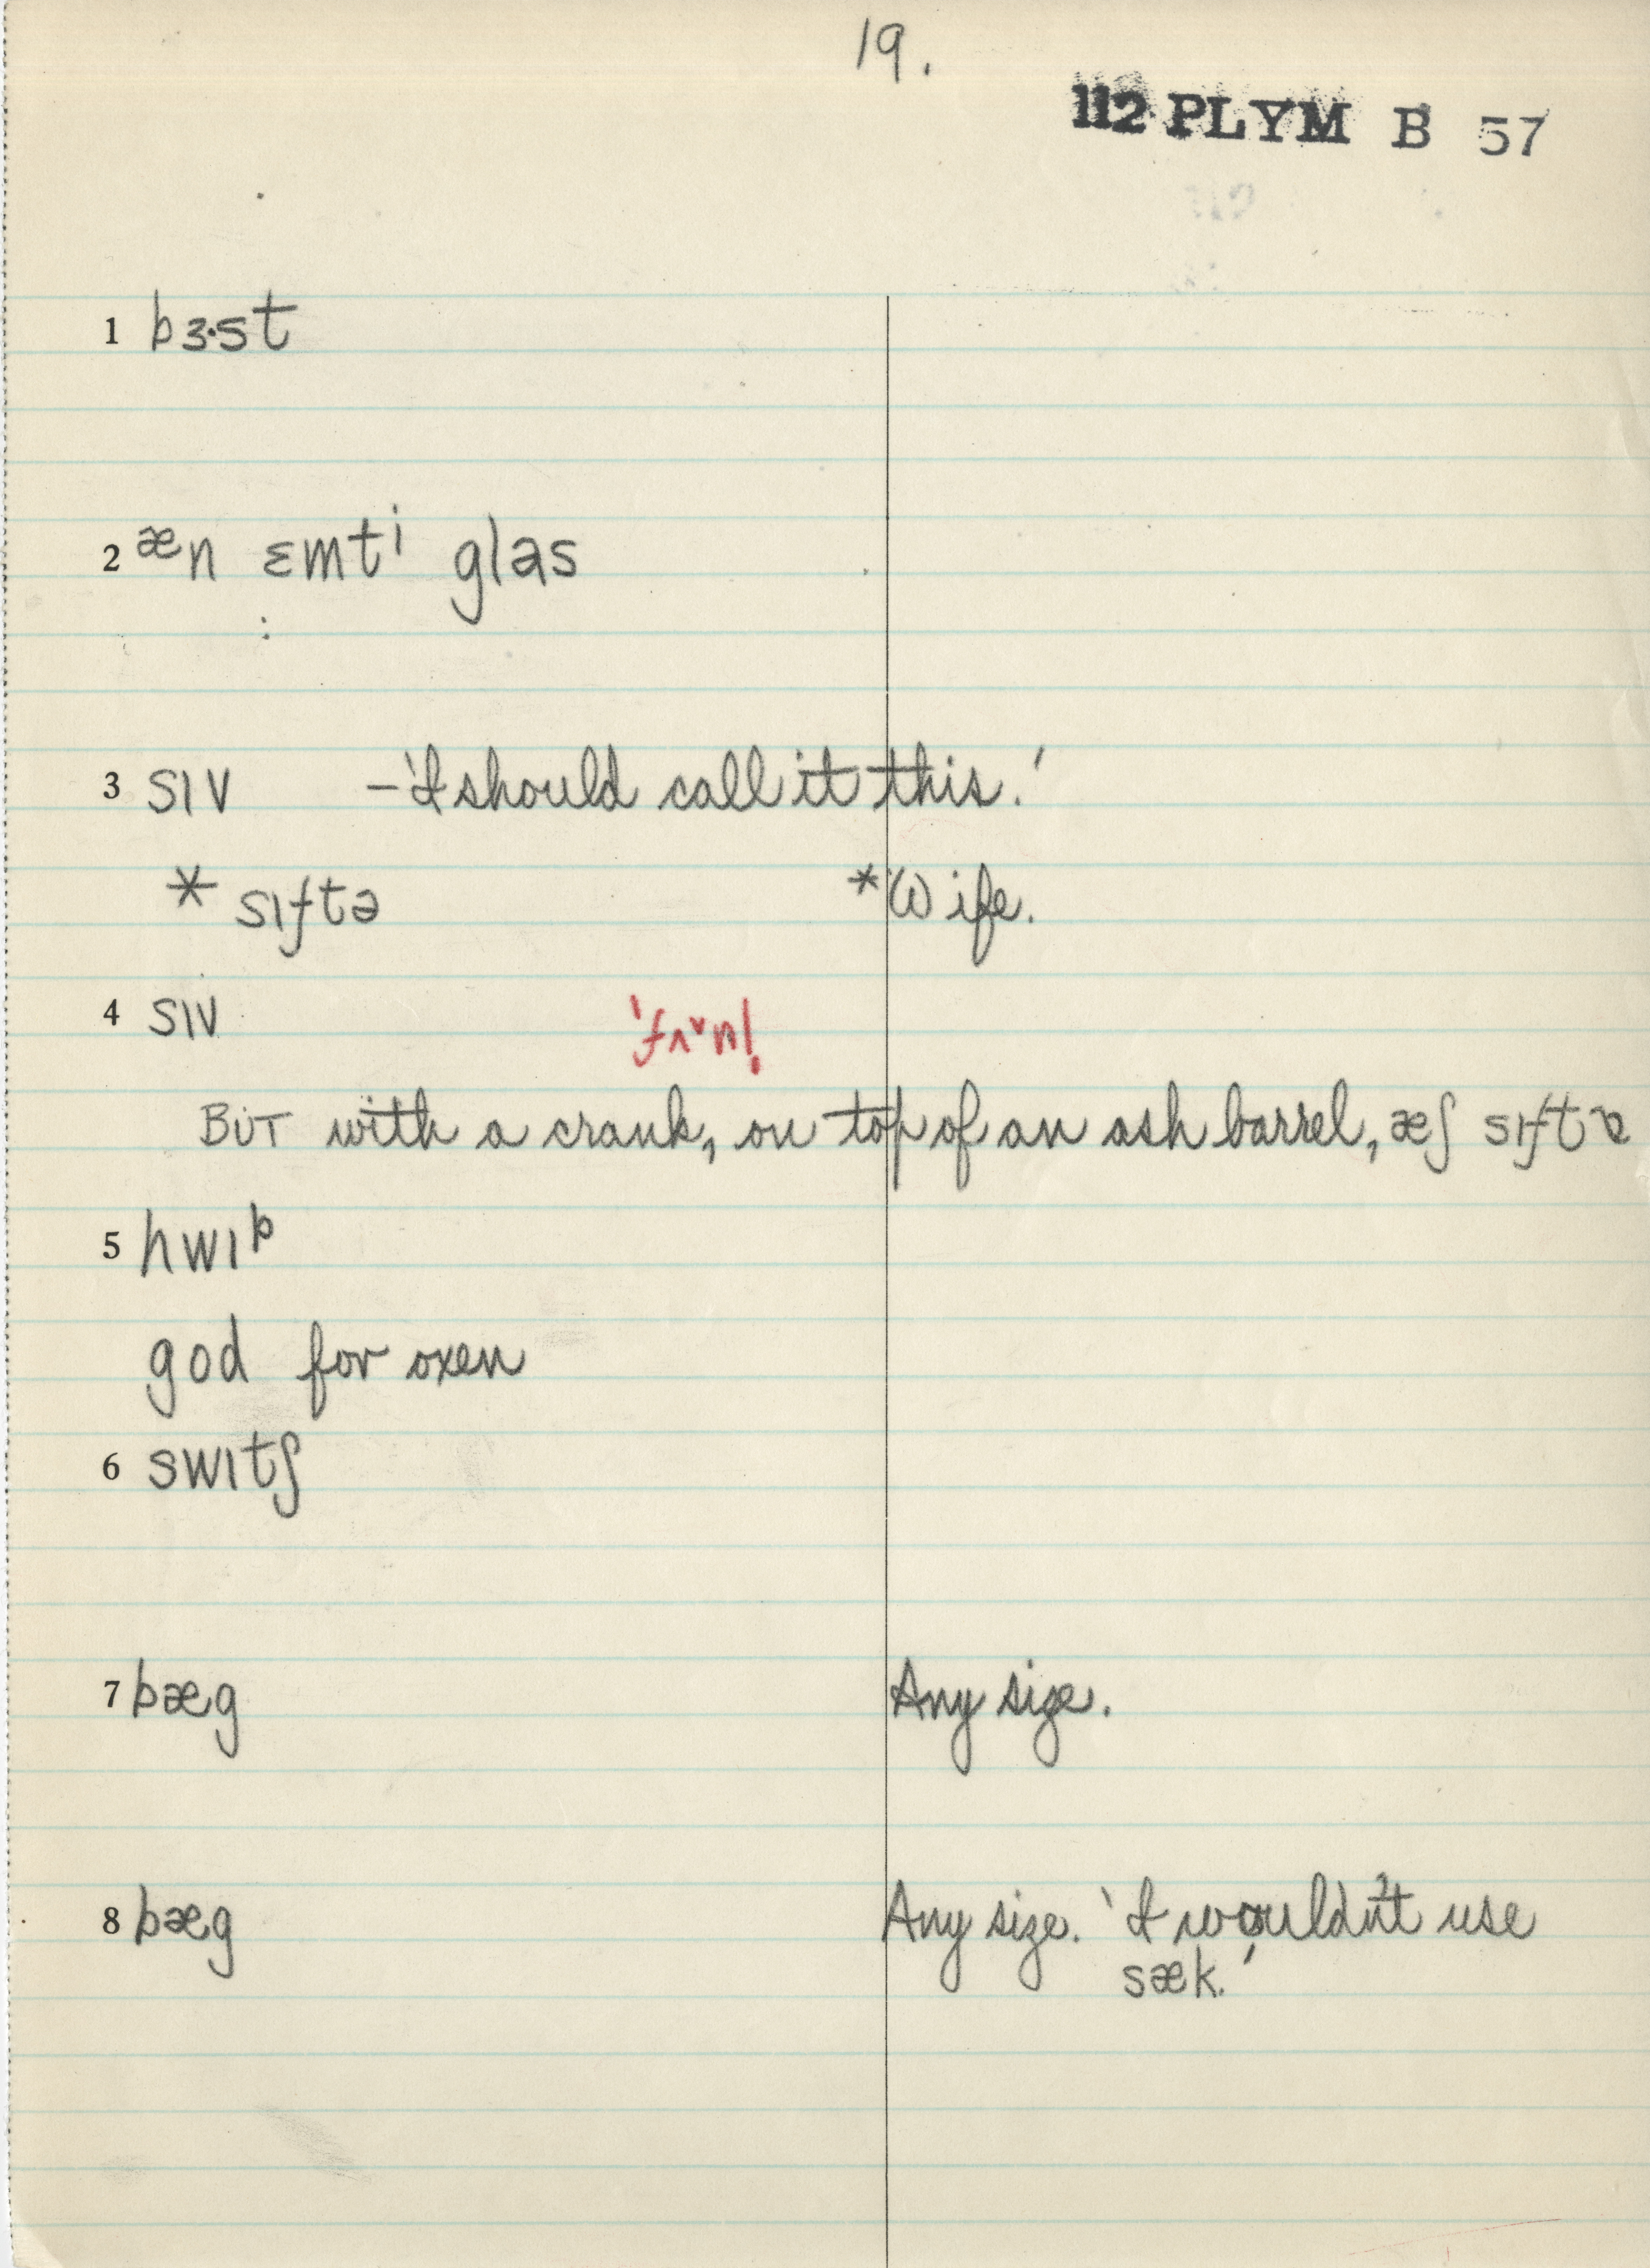 19.
112 PLYM B 57
1 bɜ·st
2 æn ɛmtⁱ glas
3 sɪv – 'I should call it this.'
* sɪftə *Wife.
4 sɪv
'fʌˇn!
BUT with a crank, on top of an ash barrel, æʃ sɪftɐ
5 hwɪᵖ
god for oxen
6 swɪtʃ
7 bæg Any size.
8 bæg Any size. 'I wouldn't use
sæk.'